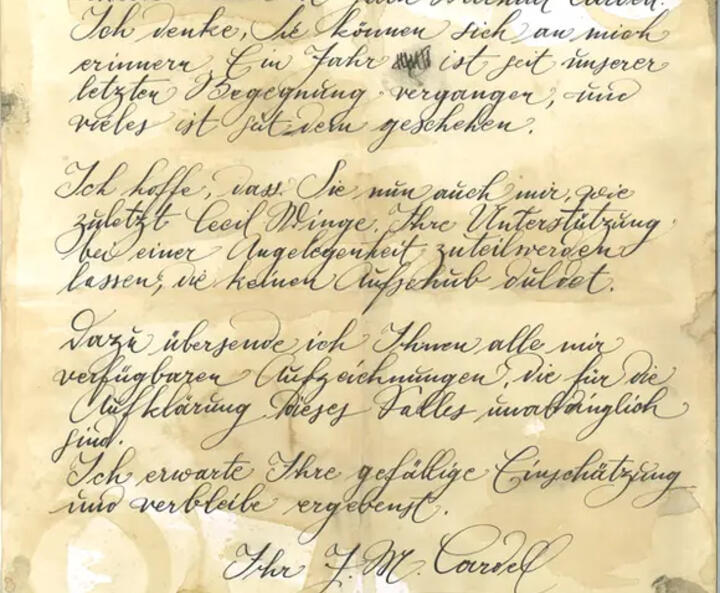 Ich denke, Sie können sich an mich
erinnern. Ein Jahr ist seit unserer
letzten Begegnung vergangen, und
vieles ist seit dem geschehen.
Ich hoffe, dass Sie nun auch mir, wie
zuletzt Cecil Winge, Ihre Unterstützung
bei einer Angelegenheit zuteilwerden
lassen, die keinen Aufschub duldet.
Dazu übersende ich Ihnen alle mir
verfügbaren Aufzeichnungen, die für die
Aufklärung dieses Falles unabdinglich
sind.
Ich erwarte Ihre gefällige Einschätzung
und verbleibe ergebenst.
Ihr J. M. Cardell